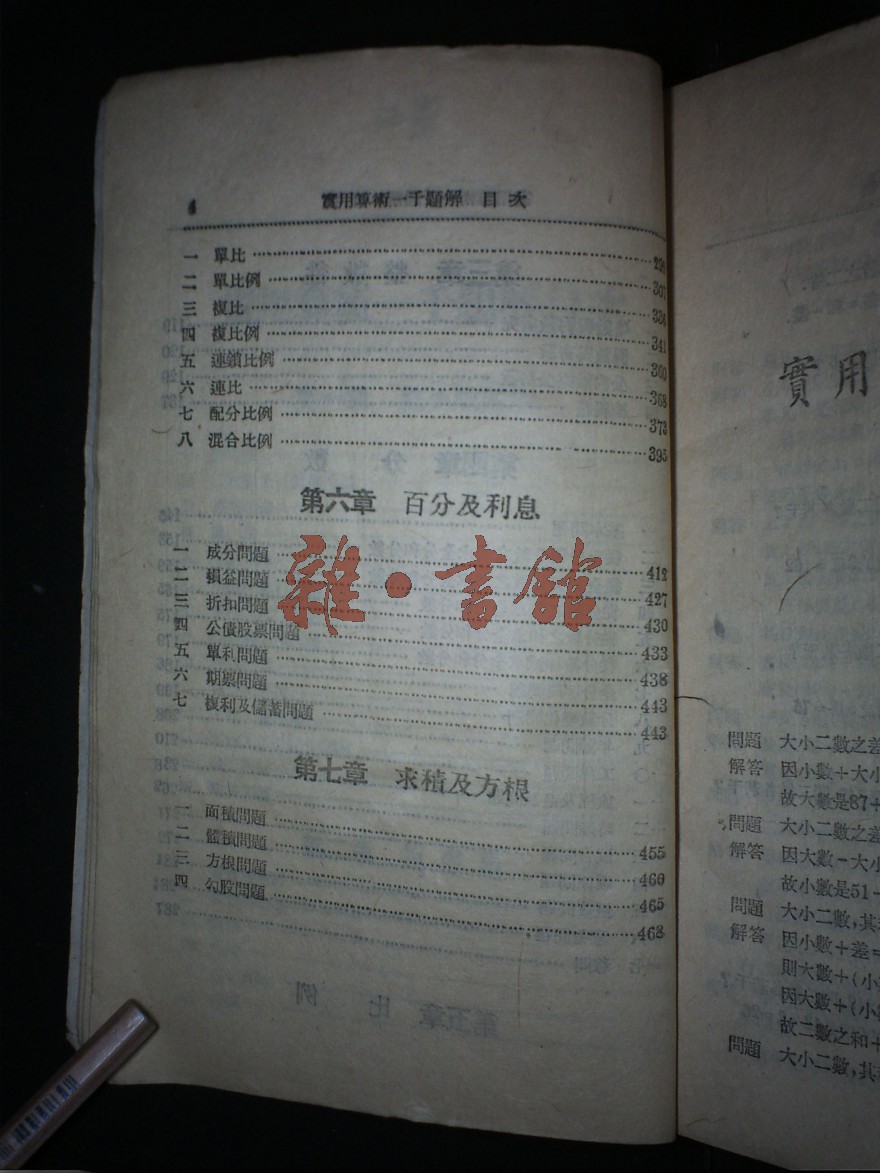 4 實用算術一千題解 目次
一 單比 298
二 單比例 307
三 複比 334
四 複比例 341
五 連鎖比例 360
六 連比 368
七 配分比例 373
八 混合比例 395
第六章 百分及利息
一 成分問題 412
二 損益問題 427
三 折扣問題 430
四 公債股票問題 433
五 單利問題 438
六 期票問題 443
七 複利及儲蓄問題 443
第七章 求積及方根
一 面積問題 455
二 體積問題 460
三 方根問題 465
四 勾股問題 468
雜·書館
實用
問題 大小二數之差
解答 因小數+大小
故大數是87+
問題 大小二數之差
解答 因大數-大小
故小數是51-
問題 大小二數,其
解答 因小數+差=
則大數+(小
因大數+(小
故二數之和+
問題 大小二數,其